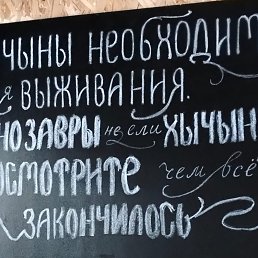 ЧЫНЫ НЕОБХОДИМ
Я ВЫЖИВАНИЯ.
НОЗАВРЫ не ели ХЫЧЫН
ОСМОТРИТЕ чем всё
ЗАКОНЧИЛОСЬ